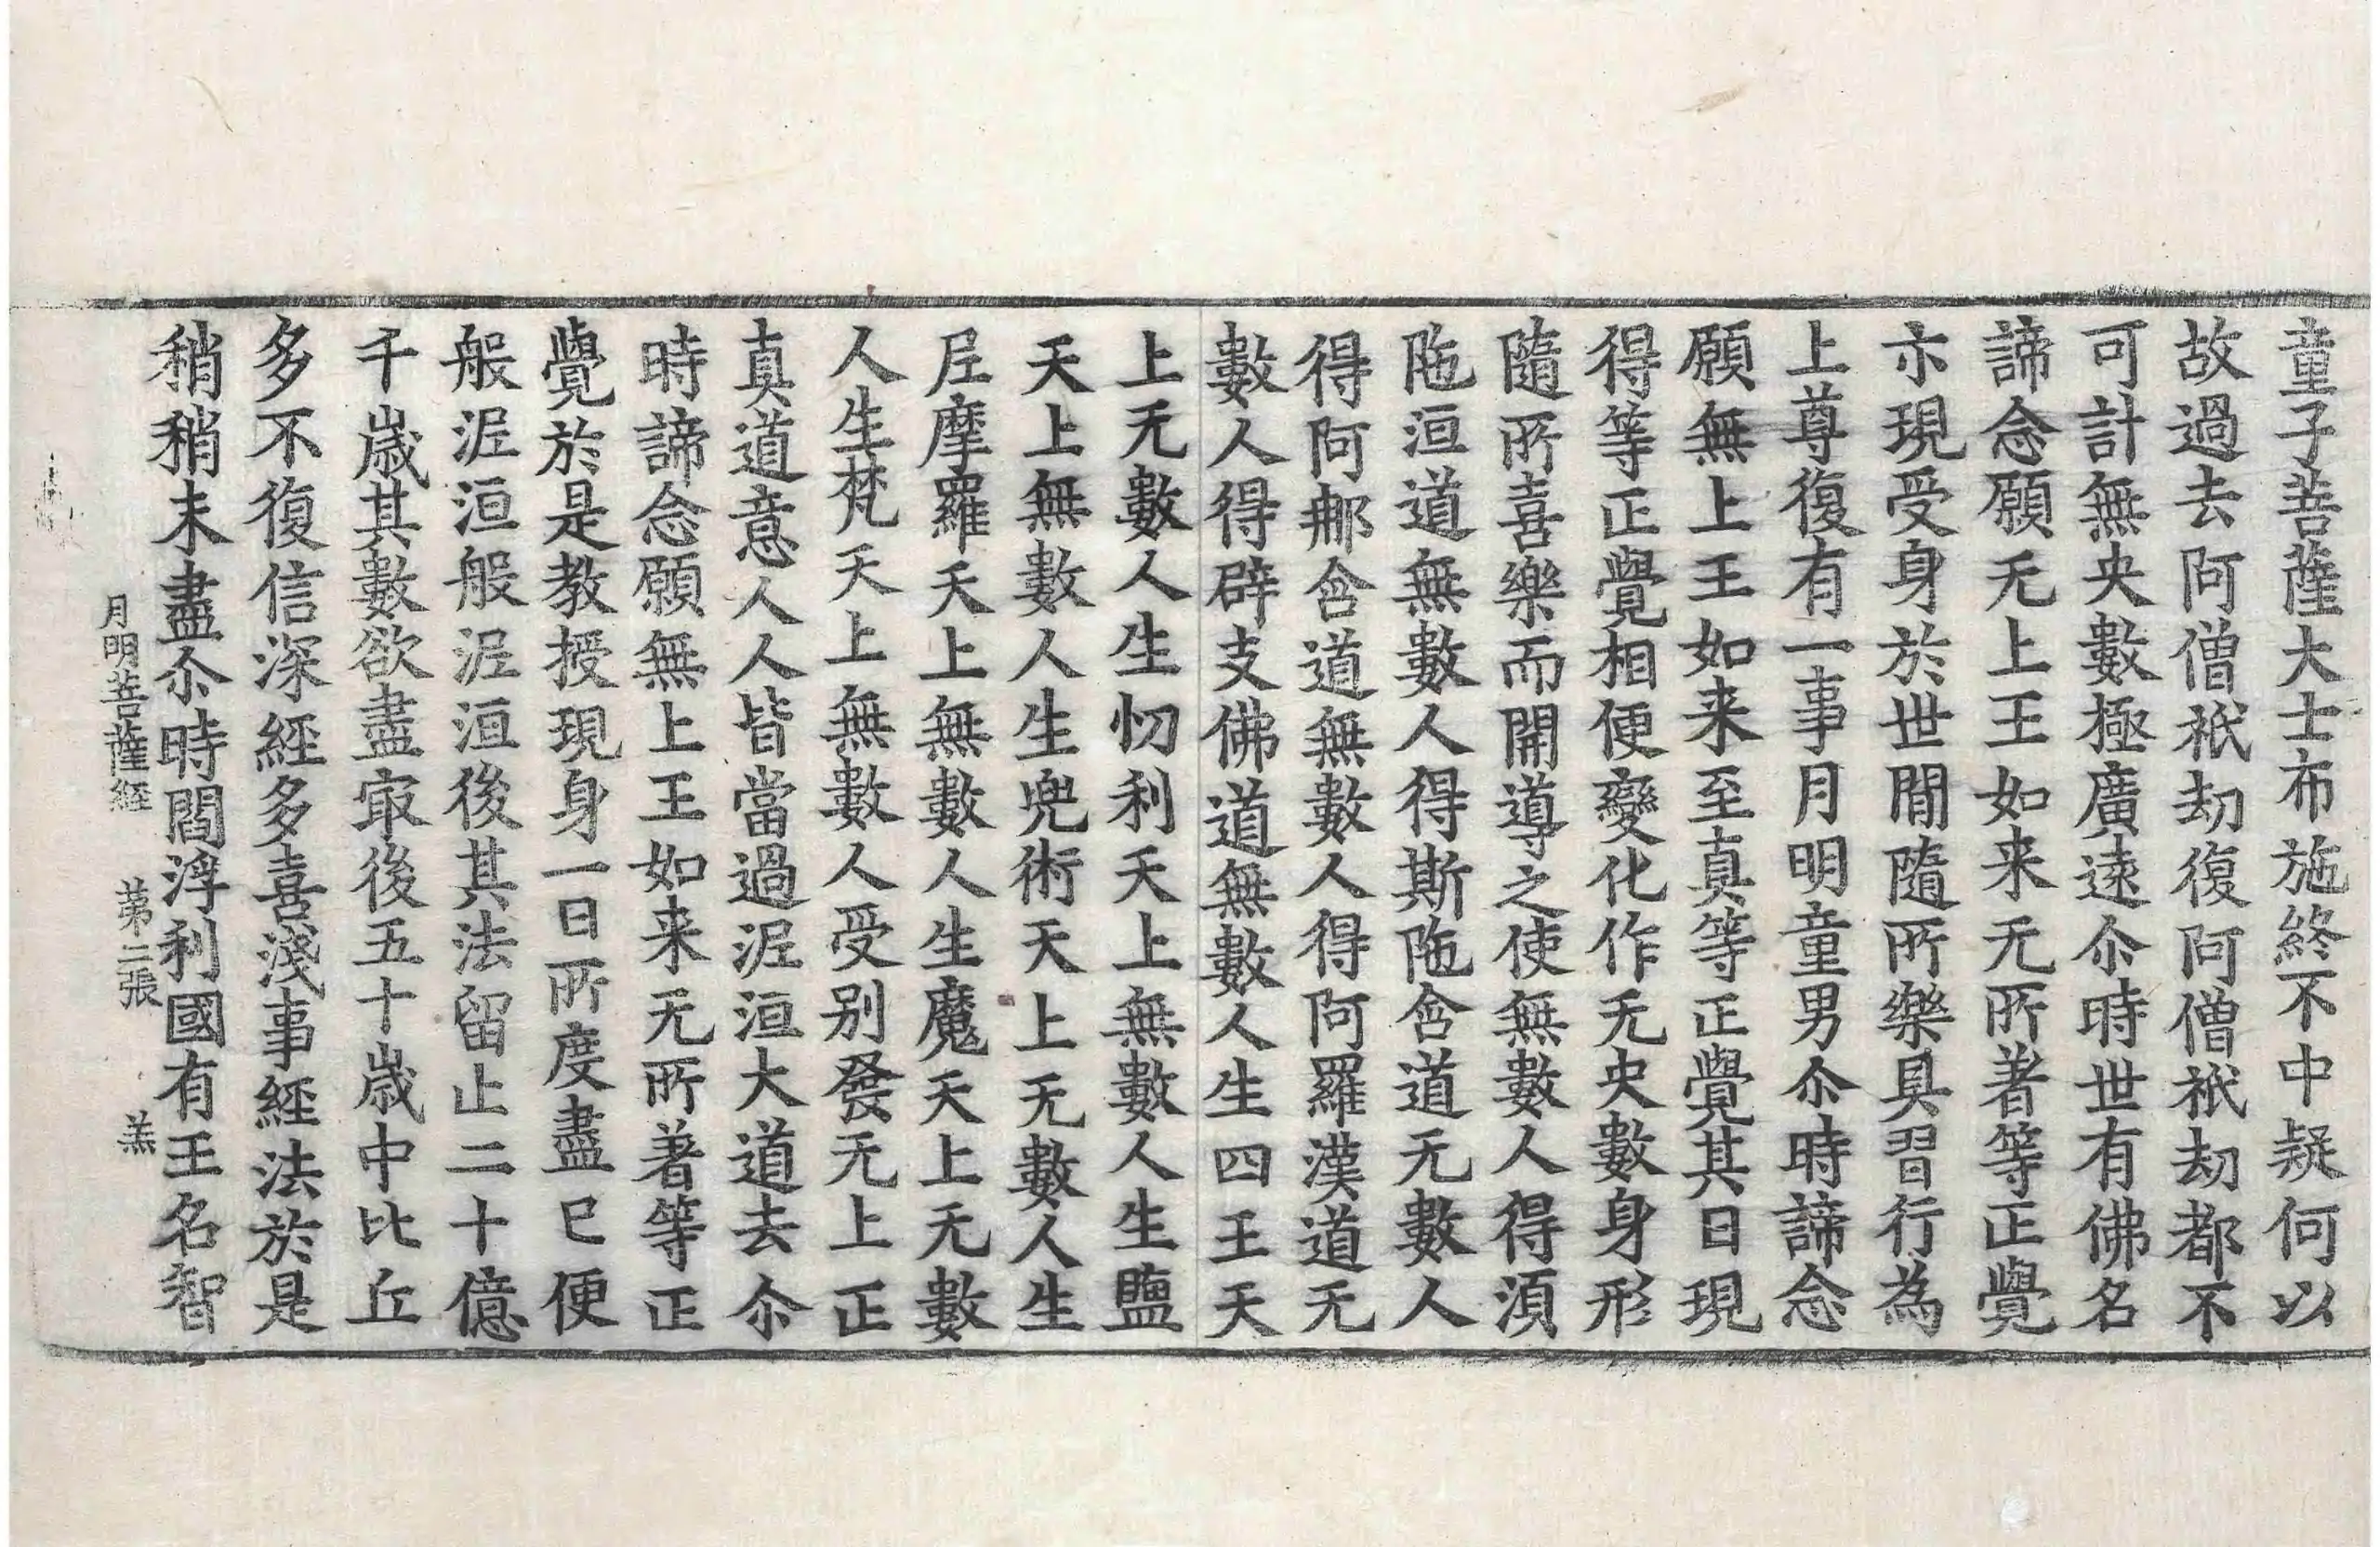 童子菩薩大士布施終不中疑何以
故過去阿僧祇劫復阿僧祇劫都不
可計無央數極廣遠尒時世有佛名
諦念願无上王如来无所著等正覺
亦現受身於世閒隨所樂具習行為
上尊復有一事月明童男尒時諦念
願無上王如来至真等正覺其日現
得等正覺相便變化作无央數身形
隨所喜樂而開導之使無數人得湏
陁洹道無數人得斯陁含道无數人
得阿那含道無數人得阿羅漢道无
數人得辟支佛道無數人生四王天
上无數人生忉利天上無數人生鹽
天上無數人生兜術天上无數人生
尼摩羅天上無數人生魔天上无數
人生梵天上無數人受别發无上正
真道意人人皆當過泥洹大道去尒
時諦念願無上王如来无所著等正
覺於是教授現身一日所度盡已便
般泥洹般泥洹後其法留止二十億
千歲其數欲盡冣後五十歲中比丘
多不復信深經多喜淺事經法於是
稍稍末盡尒時閻浮利國有王名智
月明菩薩經　第二張　羔